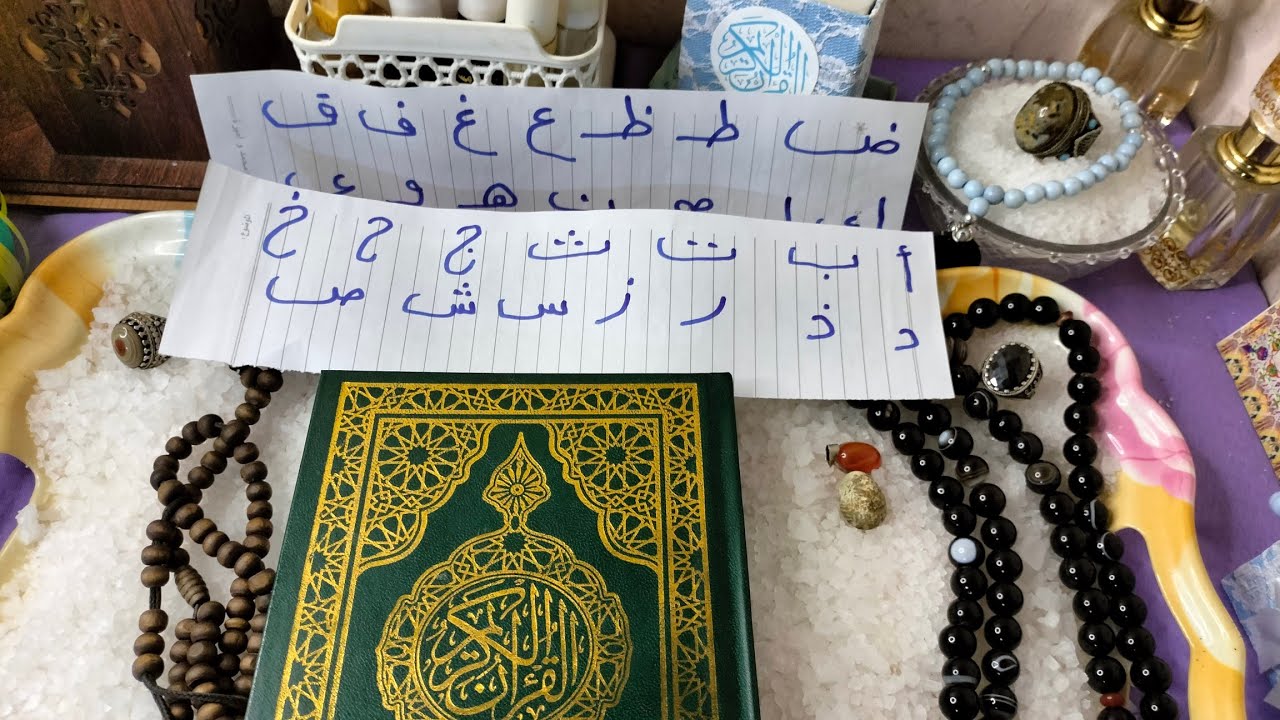 القرآن الكريم
ض ط ظ ع غ ف ق
ن هـ و ء
أ ب ت ث ج ح خ
د ذ ر ز س ش ص
القرآن الكريم